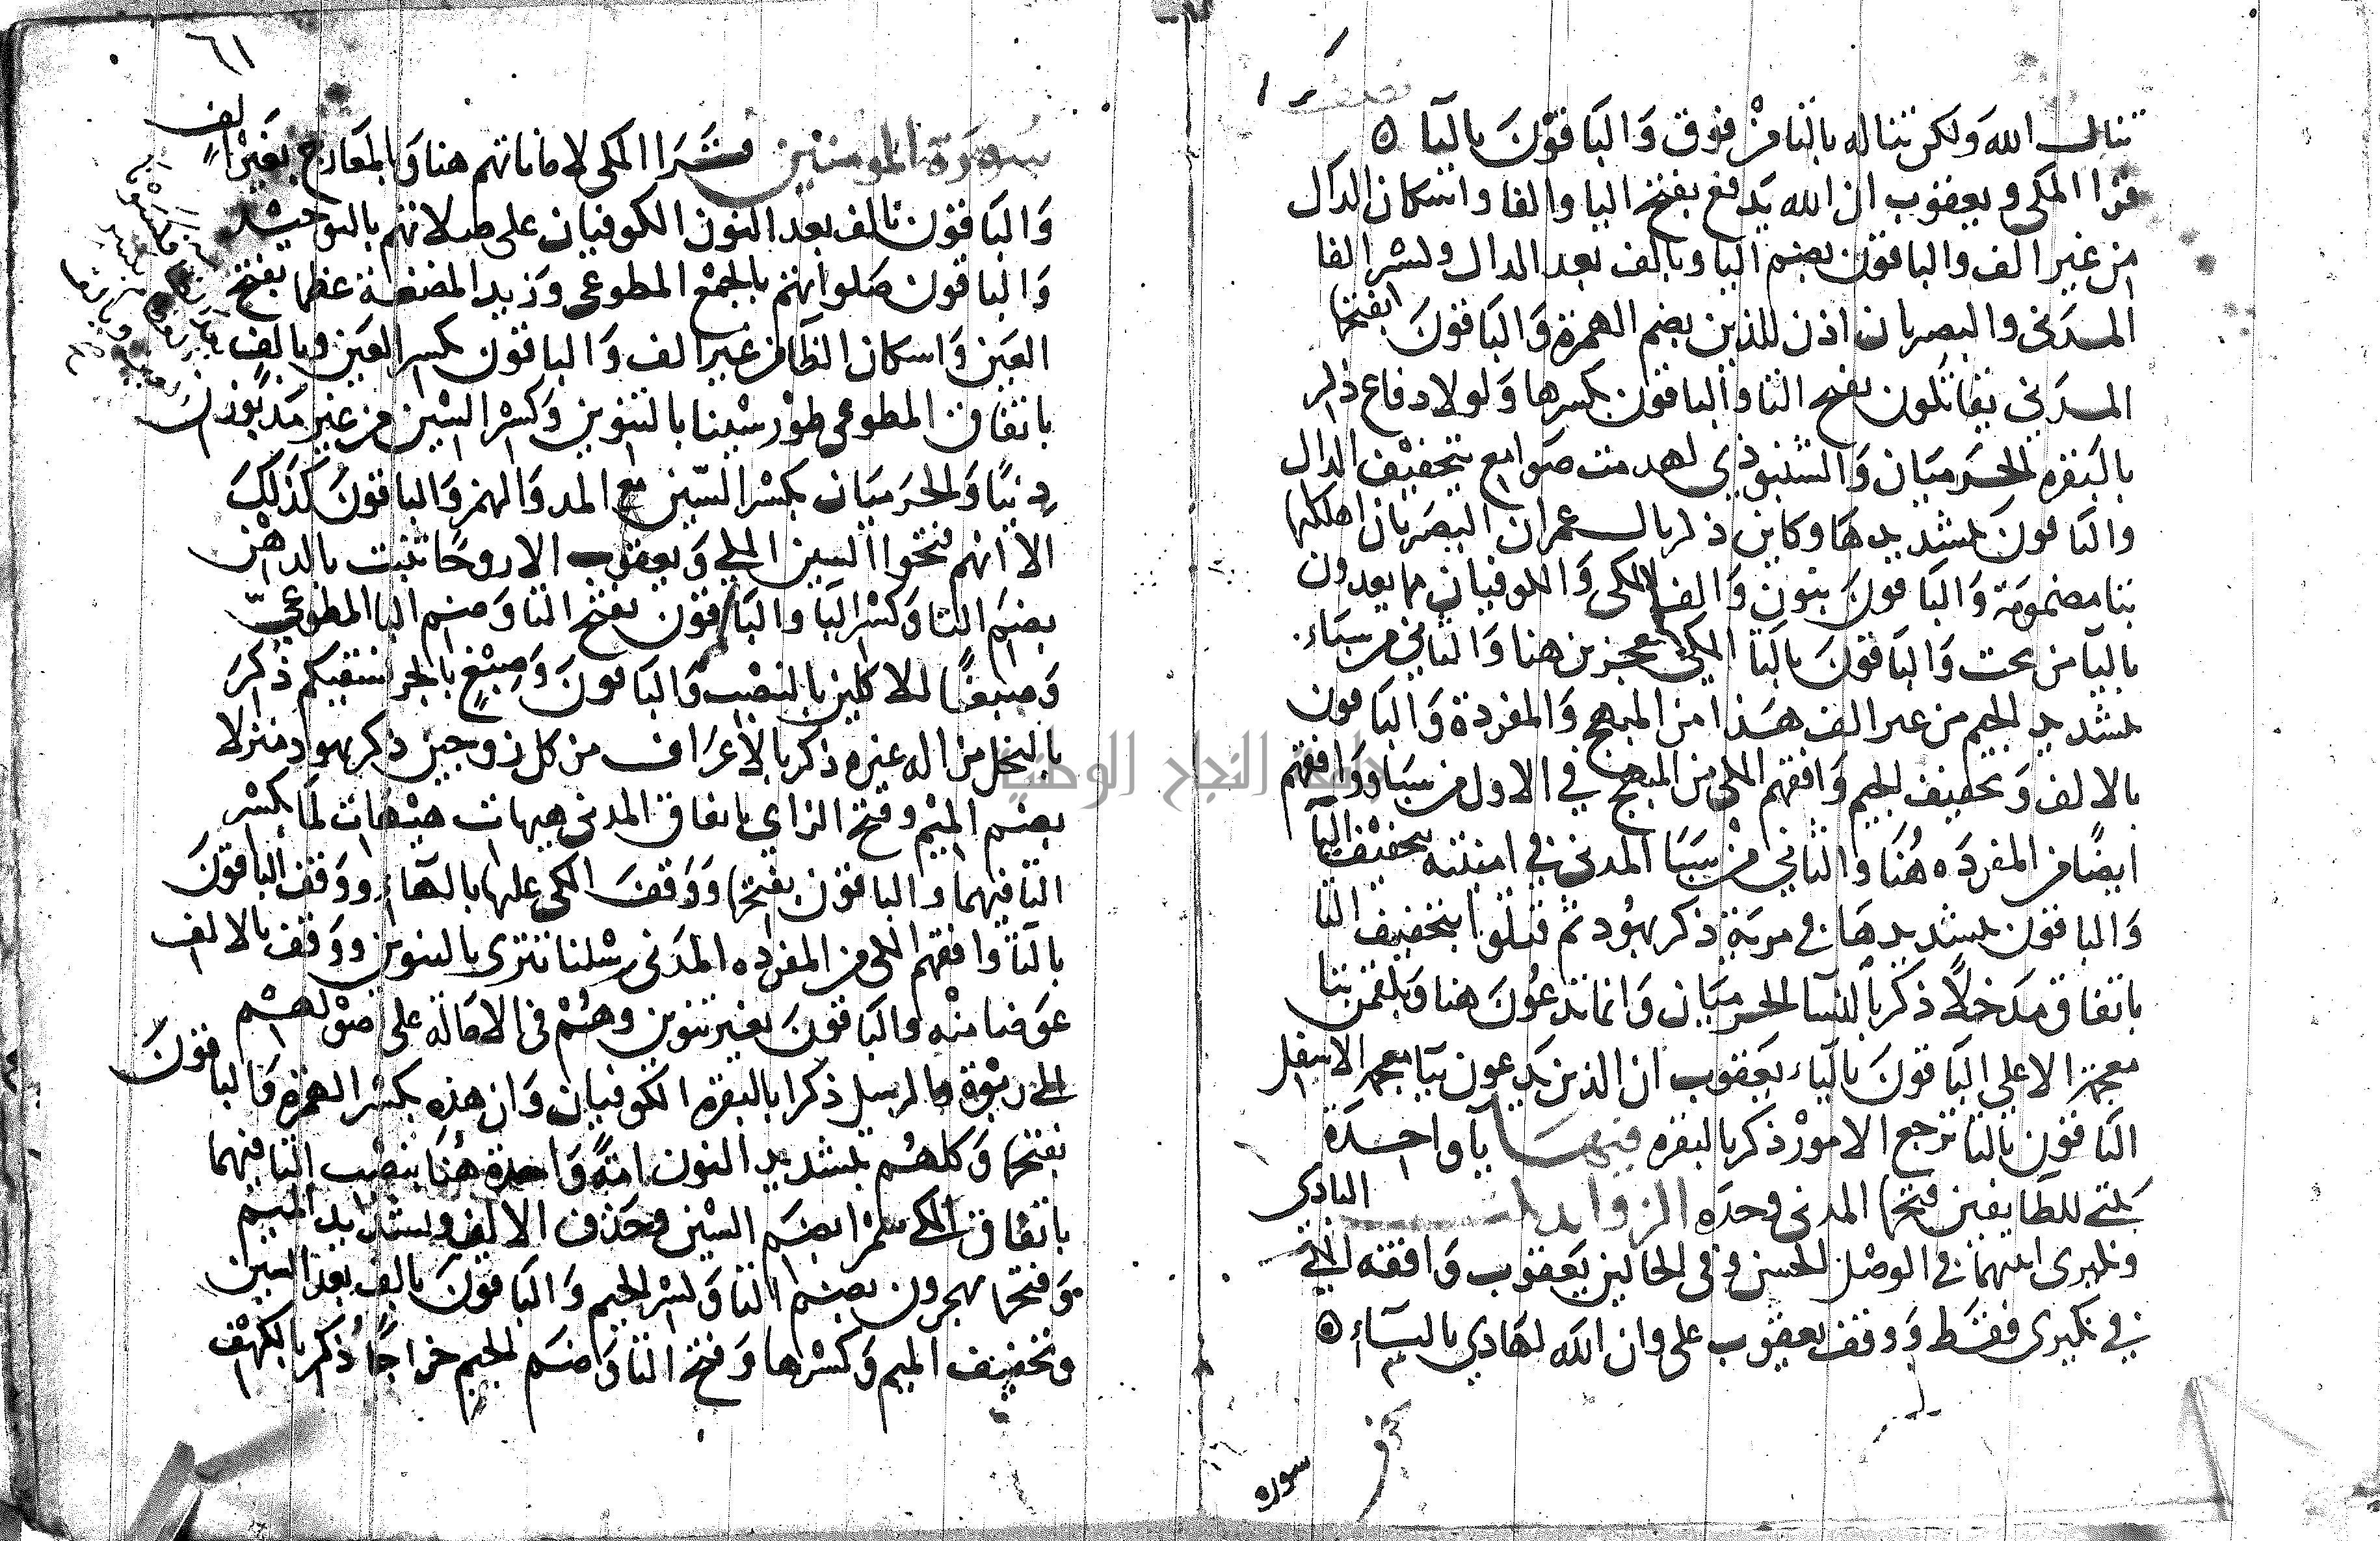 تنال الله ولكن تناله بالتا من فوق وَالبَاقوْنَ باليآ ه
قرا المكى ويعقوب ان الله يَدفع بفتح اليا والفا واسكان الدال
من غير الف والباقون بضم اليا وبالف بعد الدال وكسر الفا
المدَنى والبصريان اذن للذين بضم الهمزة وَالبَاقونَ بفتحها
المدَنى يقاتَلون بفتح التا والباقون بكسرها وَلولا دفاع ذكر
بالبَقره الحَرميَان وَالشنبوذي لهدمت صَوامع بتخفيْف الدال
والبَاقونَ بتشديدهَا وكاين ذكر بال عمران البصَريان اهلكتها
بتا مضمومَة وَالبَاقونَ بنون وَالف المكى وَالكوفيان مما يعدون
باليآ من تحت وَالبَاقونَ بالتا المكى معجزين هنا وَالثاني من سبَاء
بتشديد الجيم من غير الف هَذا من المبهج وَالمفردة وَالبَاقون
بالالف وَتخفيف الجيم وَافقهم المكى من المبهج في الاول من سبَا ووَافقهم
ايضًا من المفردَه هُنَا والثاني من سَبَا المدنى في امنيته بتخفيْف اليآ
وَالباقون بتشديدهَا في مرية ذكر بهُود ثم قتلوا بتخفيف التا
باتفاق مَدخلاً ذكر بالنسآ الحرميَان وَانما تدعُونَ هنا وَبلقمن بتا
معجمة الاعلى البَاقونَ باليآء يَعقوب ان الذين يَدعون بيَا معجمة الاسفل
البَاقوَن بالتا ترجع الامورْ ذكر بالبقره فيهَا يآ واحِدَة
بَيتي للطايفين فتحها المدنى وحدَه الزوايد الباد ذكر
ونكيرى اثبتهما في الوصْل الحسن وفي الحالين يَعقوب وَافقه
في نكيرى فقَط وَوقف يعقوب على وان الله لهَادي باليَآء ه
سوره
٦١
سُورَة المومنين قَرَا المكى لاماناتهم هنا وَبالمعَارج بغَيْر الف
وَالبَاقوْن بالف بعد النون الكوفيان على صلاتهم بالتوحيْد
وَالباقون صَلواتهم بالجمْع المطوعى وَزيد المضغة عظما بفتح
العَين وَاسكان الظآ من غير الف وَالباقون بكسر العَين وبالف
باتفاق المطوعى طوْر سْينا بالتنوين وَكسْر السْين من غير مَد بوزن
دِينًا وَالحرَميَان بكسْر السّين مع المد وَالهمز وَالباقونَ كذَلكَ
الا انهم فتحوا السين المكى وَيعقوب الا روحًا تنبت بالدهْن
بضم التا وَكسْر البَا والبَاقوْن بفتح التا وَضم البا المطوعيّ
وَصبغًا للاكلين بالنصْب وَالبَاقونَ وَصِبْغٍ بالجر نسقيكم ذكرَ
بالنحل من اله غيره ذكر بالأعرَاف من كل زوجين ذكر بهود منزلا
بضم الميْم وفتح الزاي باتفاق المدنى هيهات هيْهات لمَا بكسْر
التا فيهما والباقوْن بفتحها وَوَقفَ المكى عليها بالهَآء ووَقف البَاقونَ
بالتا وَافقهم المكى من المفرده المدَنى رسْلنا تترى بالتنوين ووَقف بالالف
عوَضا منْه والبَاقونَ بغير تنوين وهُمْ فى الامَالة على اصْولهمْ
الى ربْوة والرسل ذكرا بالبقرة الكوفيان وَان هذِه بكسْر الهمزه وَالباقونَ
بفتحها وَكلهُم بتشديد النون امةً وَاحدة هُنَا بنصْب التا فيهما
باتفاق المكى سُمَّرا بضم السْين وحَذف الالف وتشديد الميْم
وَفتحها تهجرون بضم التا وَكسْر الجيم وَالبَاقونَ بالف بعد السين
وتخفيف الميم وَكسْرها وَفتح التا وَضم الجيم خراجًا ذُكر بالكهْف